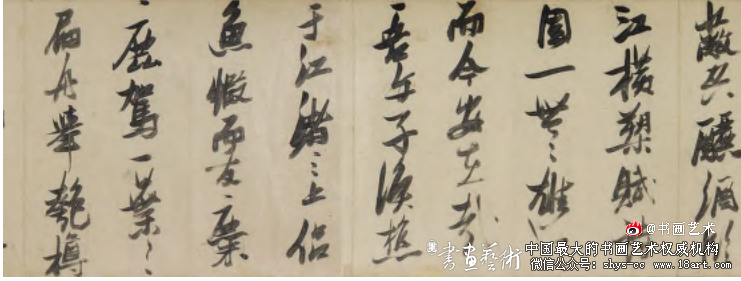 蔽空釃酒臨
江橫槊賦詩
固一世之雄也
而今安在哉
吾与子漁樵
于江渚之上侶
魚蝦而友麋
鹿駕一葉之
扁舟舉匏樽
@书画艺术
書畫藝術
中国最大的书画艺术权威机构
微信公众号：shys-cc www.18art.com